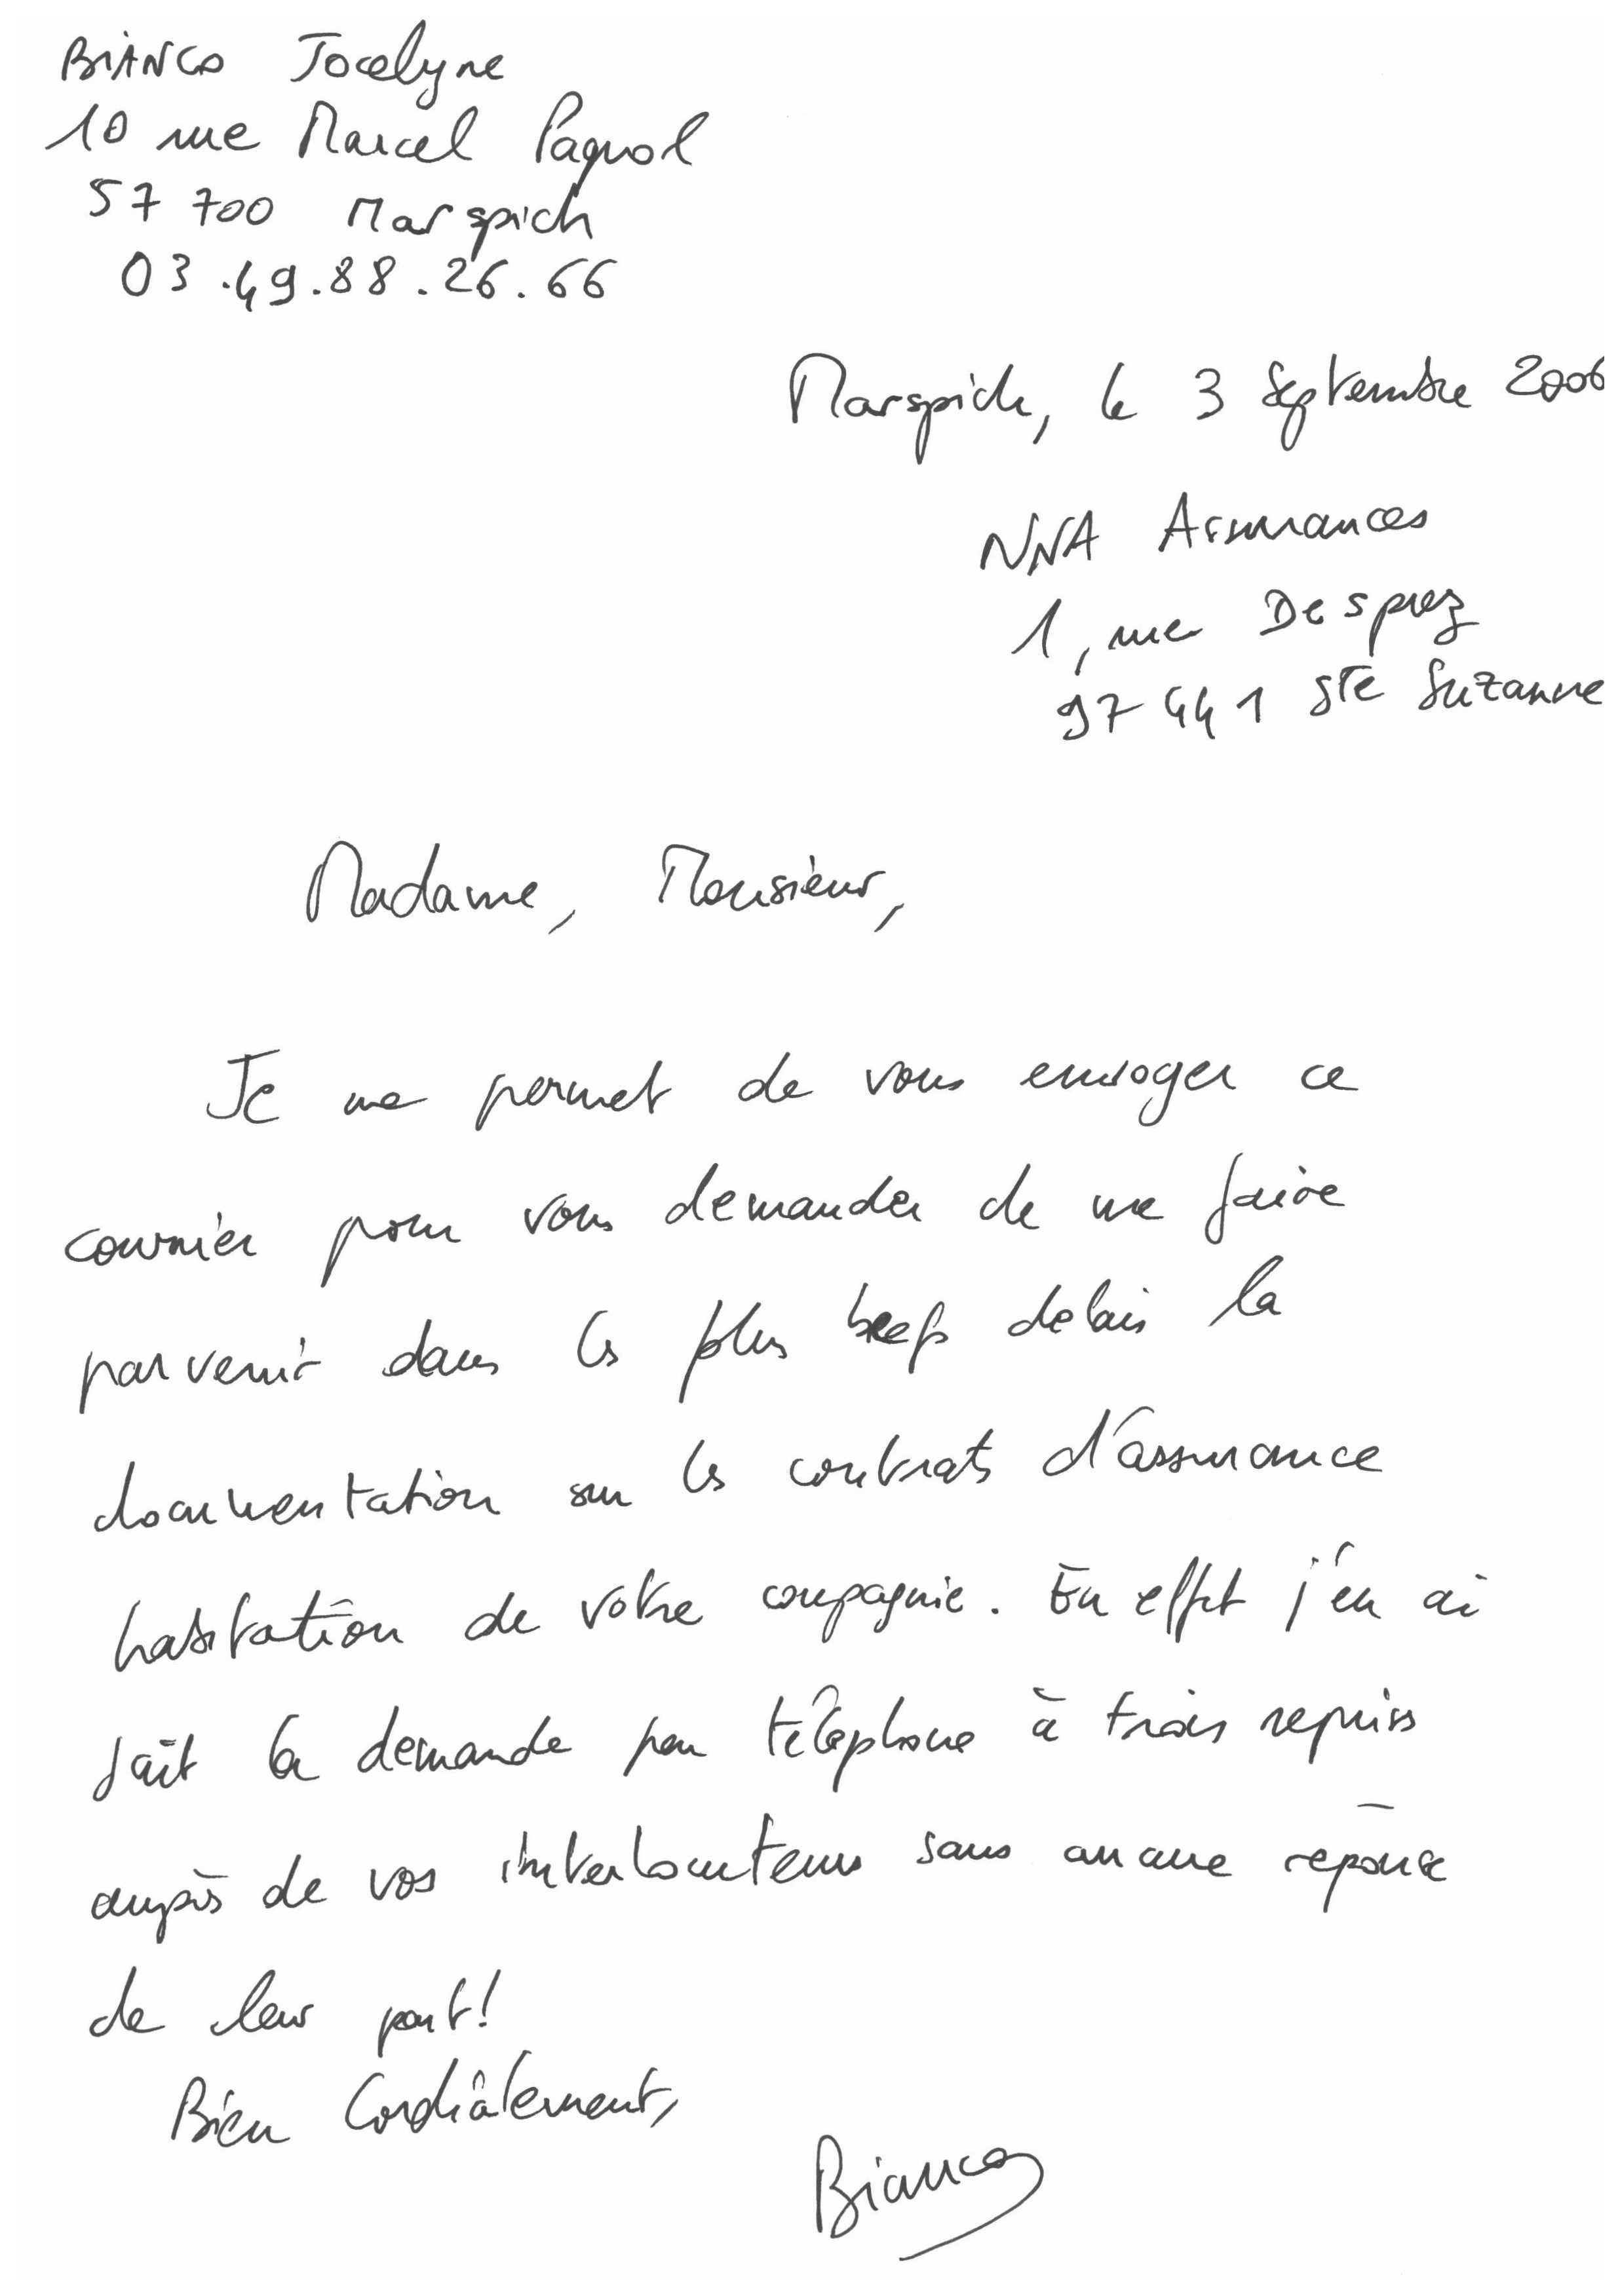 BIANCO Jocelyne
10 rue Marcel Pagnol
57 700 Marspich
03.49.88.26.66
Marspich, le 3 Septembre 2006
NNA Assurances
1, rue Desprez
97 441 Ste Suzanne
Madame, Monsieur,
Je me permet de vous envoyer ce
courrier pour vous demander de me faire
parvenir dans les plus brefs delais la
documentation sur les contrats d'assurance
habitation de votre compagnie. En effet j'en ai
fait la demande par téléphone à trois reprises
auprès de vos interlocuteurs sans aucune réponse
de leur part !
Bien Cordialement,
Bianco